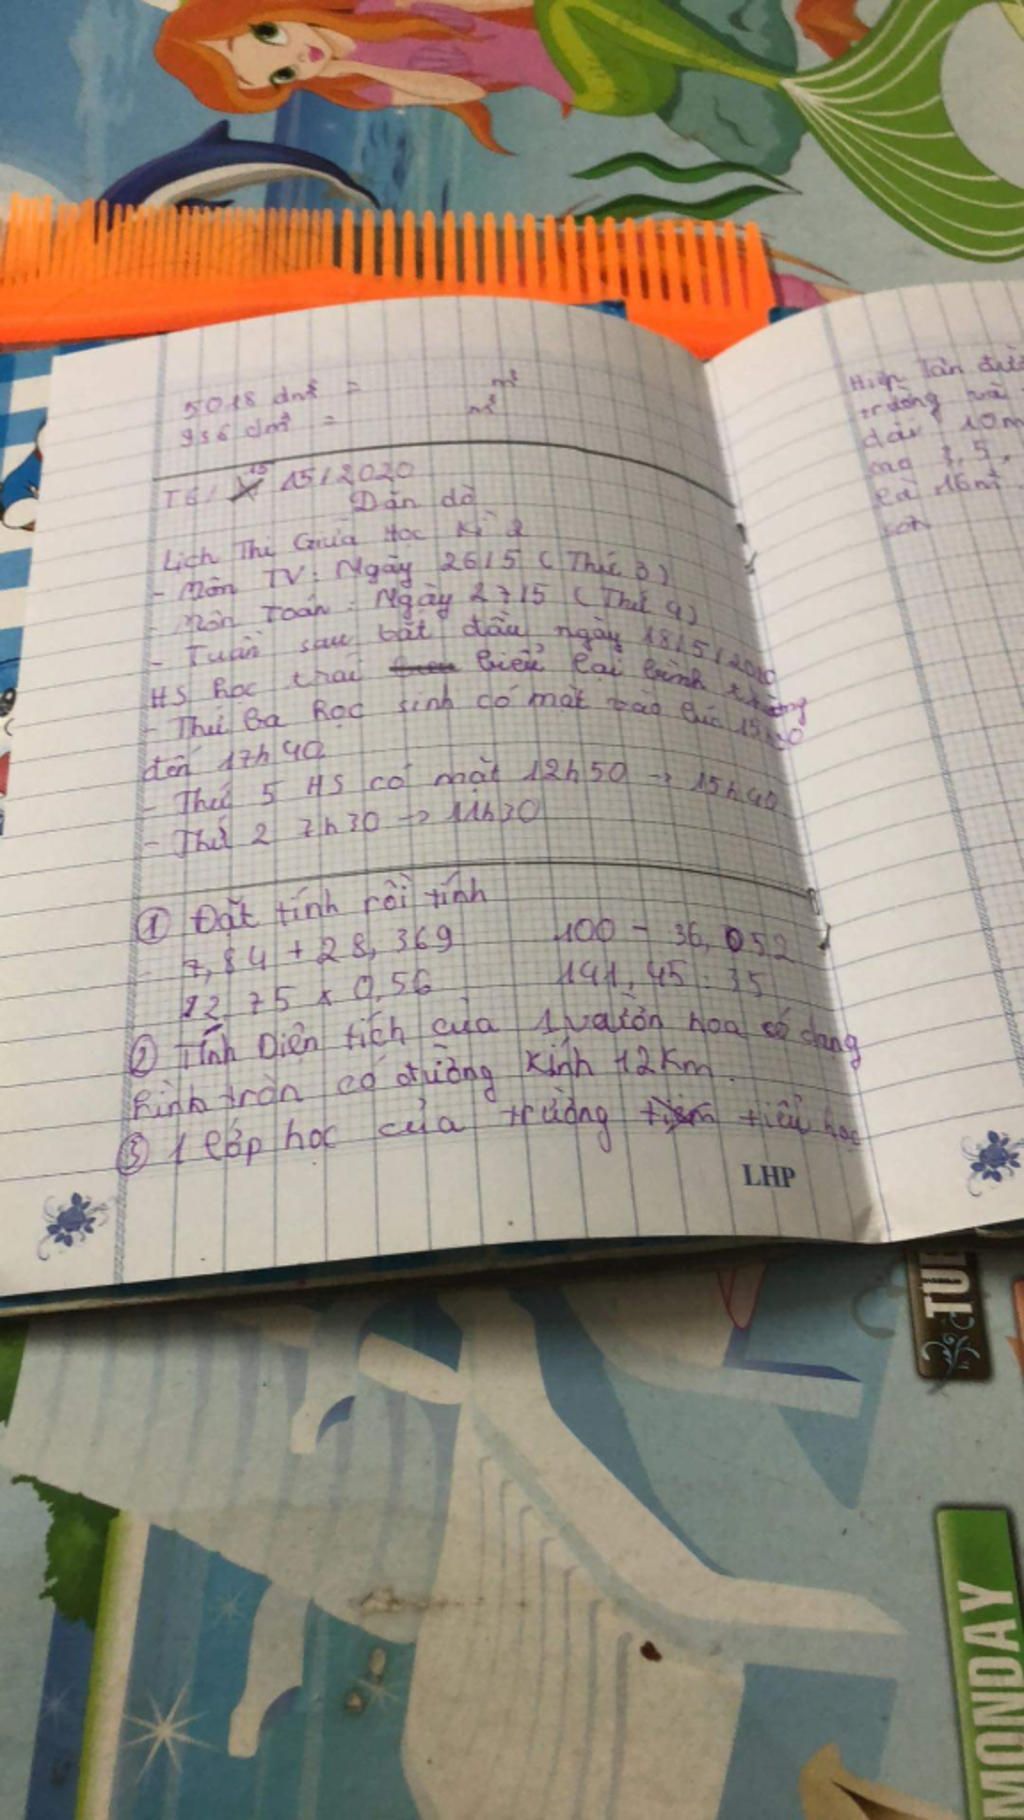 5018 dm³ = m³
936 dm³ = m³
T6/ 15 15/2020
Dặn dò
Lịch Thi Giữa Học Kì 2
- Môn TV: Ngày 26/5 (Thứ 3)
- Môn Toán: Ngày 27/5 (Thứ 4)
- Tuần sau bắt đầu ngày 18/5/2020
HS học thời biểu lại bình thường
- Thứ Ba học sinh có mặt vào lúc
đến 17h40
- Thứ 5 HS có mặt 12h50 → 15h40
- Thứ 2 7h30 → 11h30
① Đặt tính rồi tính
7,84 + 28,369 100 - 36,052
22,75 x 0,56 141,45 : 35
② Tính Diện tích của 1 vườn hoa có dạng
hình tròn có đường kính 12km.
③ 1 lớp học của trường tiểu học
LHP
trường
dài 10m
3,5
là 16m²
TUE
MONDAY